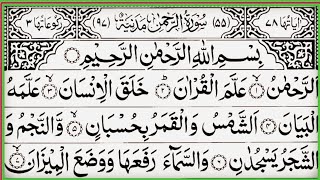 اٰیَاتُهَا ٧٨ (٥٥) سُوْرَةُ الرَّحْمٰنِ مَدَنِيَّةٌ (٩٧) رُكُوْعَاتُهَا ٣
بِسْمِ اللّٰهِ الرَّحْمٰنِ الرَّحِيْمِ
اَلرَّحْمٰنُ ۙ﴿١﴾ عَلَّمَ الْقُرْاٰنَ ؕ﴿٢﴾ خَلَقَ الْاِنْسَانَ ۙ﴿٣﴾ عَلَّمَهُ
الْبَيَانَ ﴿٤﴾ اَلشَّمْسُ وَالْقَمَرُ بِحُسْبَانٍ ۪﴿٥﴾ وَّالنَّجْمُ وَ
الشَّجَرُ يَسْجُدٰنِ ﴿٦﴾ وَالسَّمَآءَ رَفَعَهَا وَوَضَعَ الْمِيْزَانَ ۙ﴿٧﴾